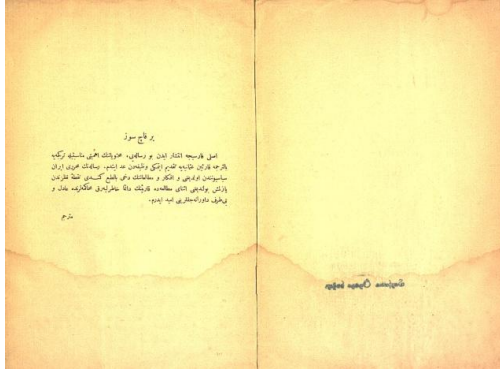 بر قاچ سوز
اصلی فارسیجه انتشار ایدن بو رساله‌یی، محتویاتنك اهمیتی مناسبتیله تركجه‌یه
بالترجمه قارئین عثمانیه‌یه تقدیم ایتمكی وظیفه‌دن عد ایتدم. رساله‌نك محرری ایران
سیاسیونندن اولدیغی و افكار و مطالعاتنك دخی بالطبع كندی نقطهٔ نظرندن
یازلمش بولندیغی اثنای مطالعه‌ده قارئلرك دائما خاطرلیه‌رق محاكمه‌لرنده عادل و
بی‌طرف داورانه‌جقلرینی امید ایدرم.
مترجم